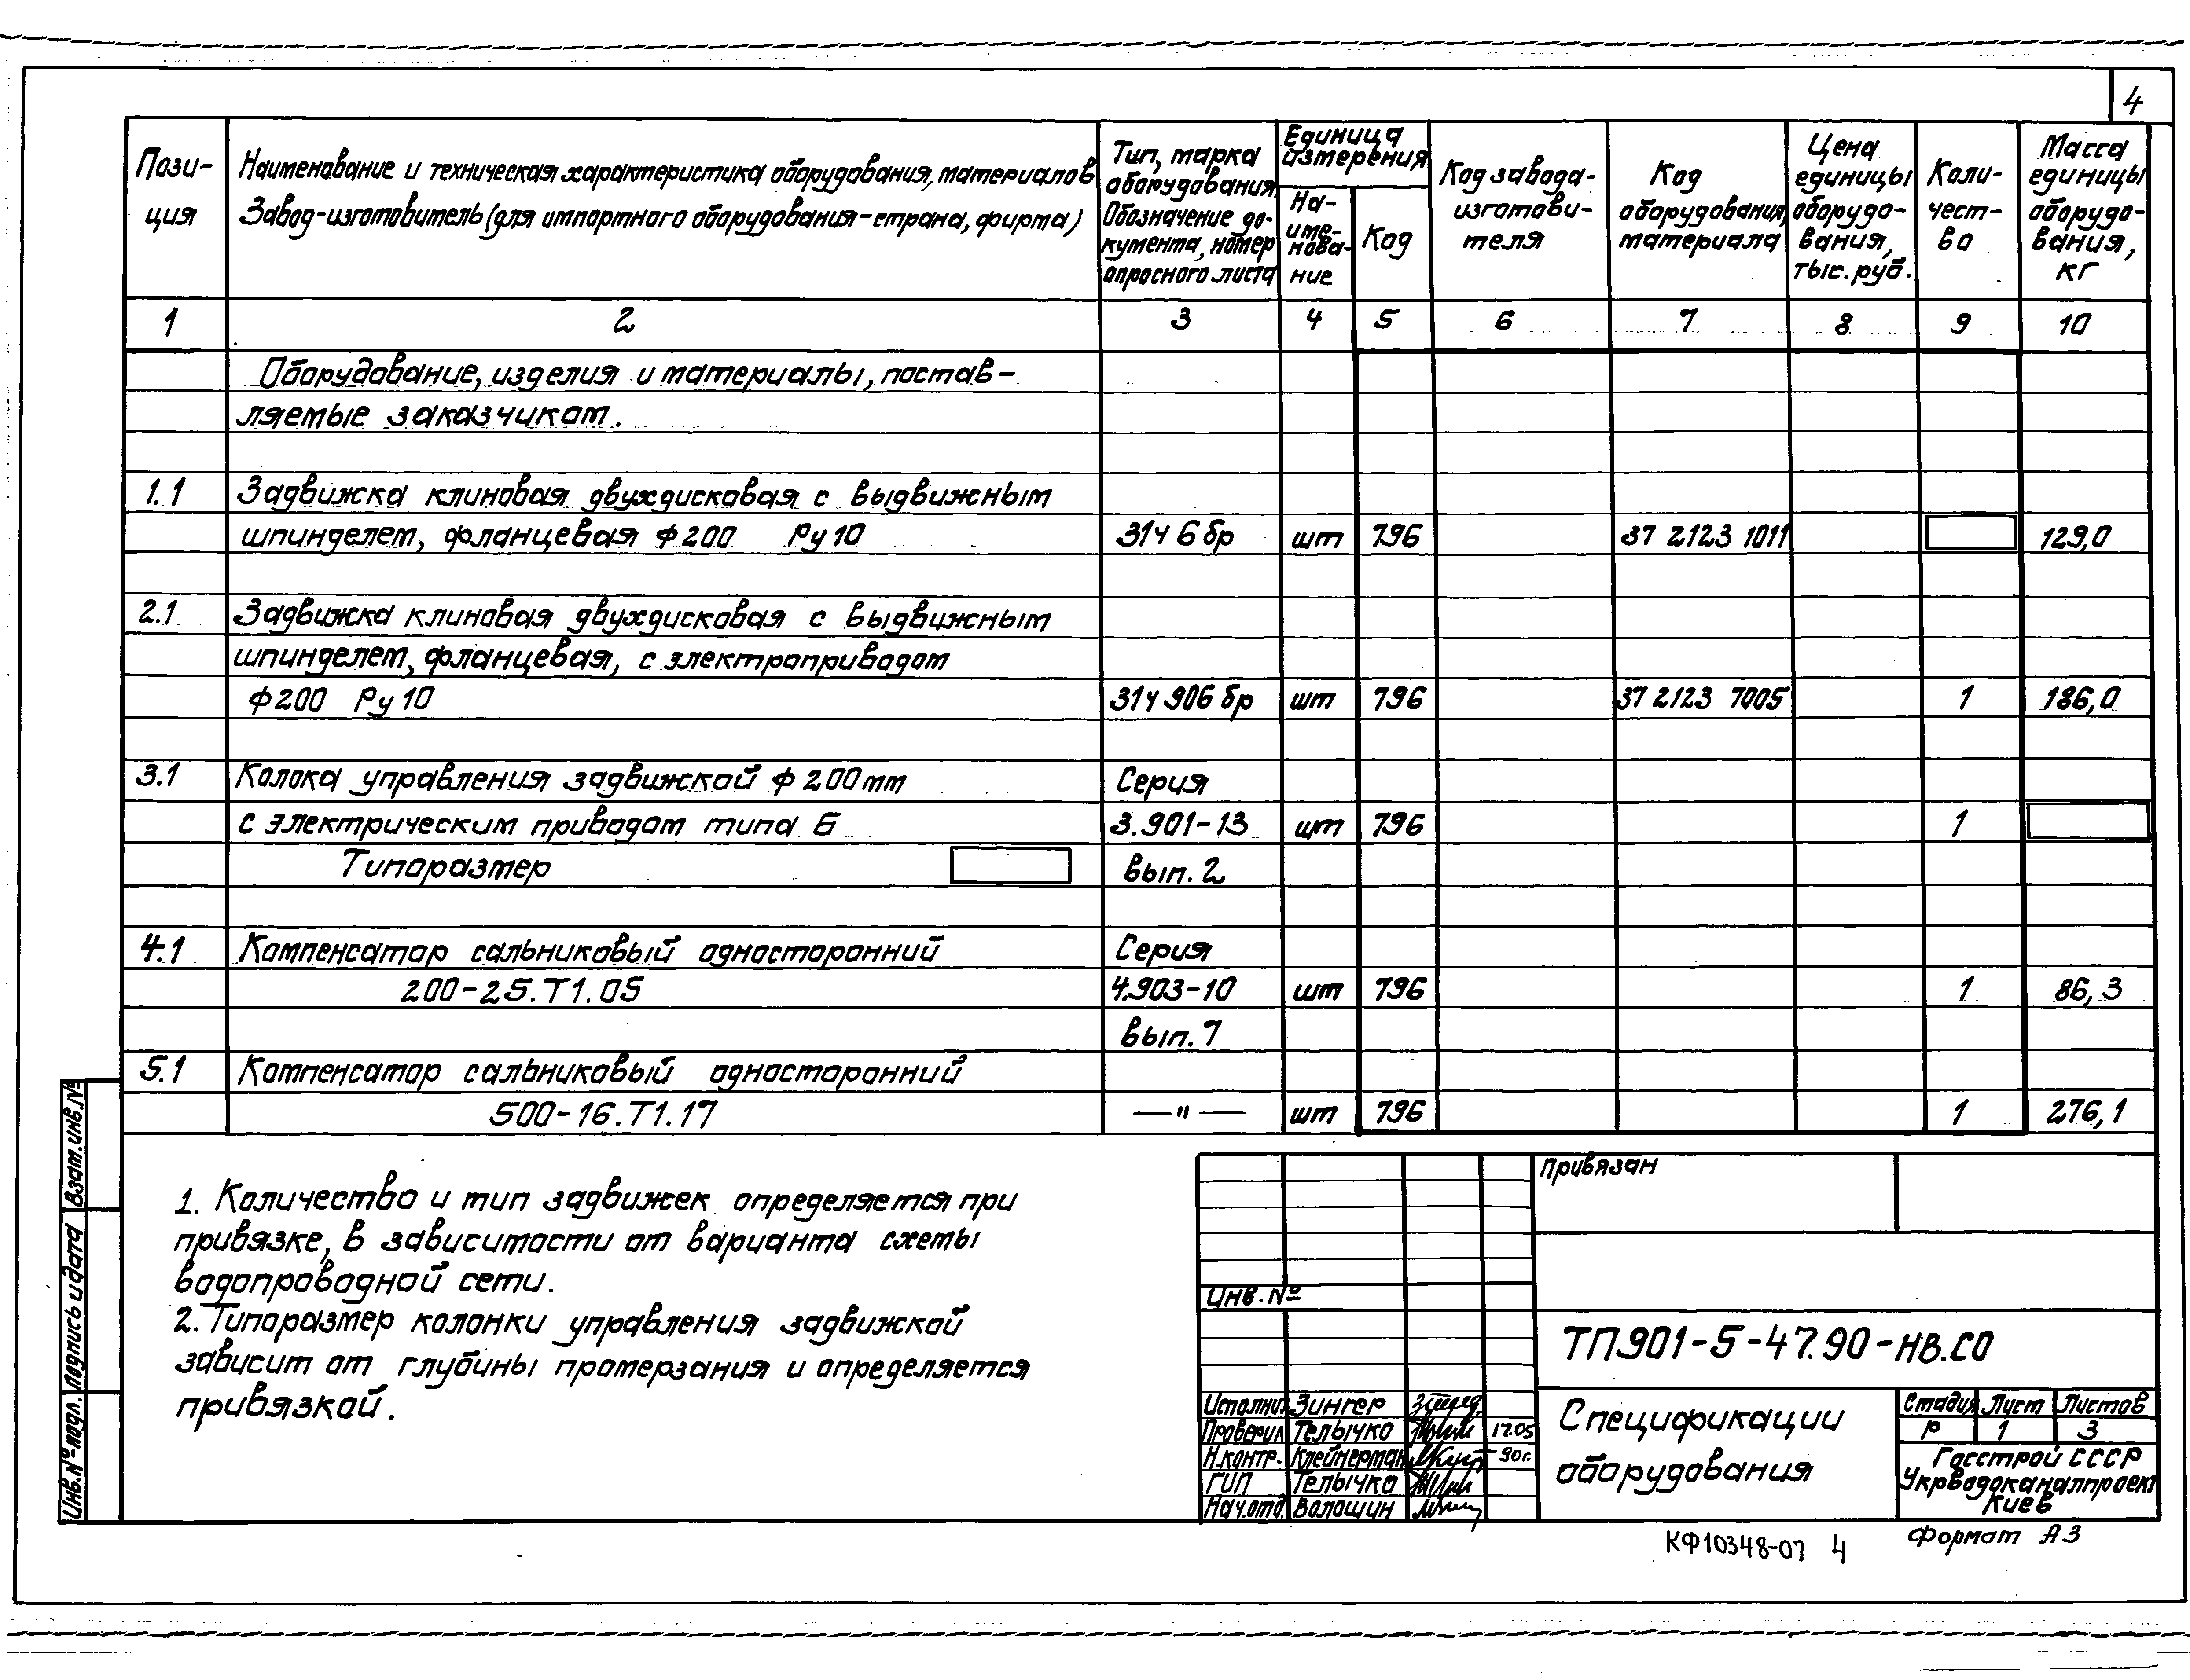 4
Пози-
ция
Наименование и техническая характеристика оборудования, материалов
Завод-изготовитель (для импортного оборудования-страна, фирма)
Тип, марка
оборудования.
Обозначение до-
кумента, номер
опросного листа
Единица
измерения
На-
име-
нова-
ние
Код
Код завода-
изготови-
теля
Код
оборудования,
материала
Цена
единицы
оборудо-
вания,
тыс. руб.
Коли-
чест-
во
Масса
единицы
оборудо-
вания,
кг
1 2 3 4 5 6 7 8 9 10
Оборудование, изделия и материалы, постав-
ляемые заказчиком.
1.1 Задвижка клиновая двухдисковая с выдвижным
шпинделем, фланцевая ф 200 Ру 10 31ч 6 бр шт 796 37 2123 1011 129,0
2.1 Задвижка клиновая двухдисковая с выдвижным
шпинделем, фланцевая, с электроприводом
ф 200 Ру 10 31ч 906 бр шт 796 37 2123 7005 1 186,0
3.1 Колока управления задвижкой ф 200 мм Серия
с электрическим приводом типа Б 3.901-13 шт 796 1
Типоразмер вып. 2
4.1 Компенсатор сальниковый односторонний Серия
200-25.Т1.05 4.903-10 шт 796 1 86,3
вып. 7
5.1 Компенсатор сальниковый односторонний
500-16.Т1.17 —"— шт 796 1 276,1
1. Количество и тип задвижек определяется при
привязке, в зависимости от варианта схемы
водопроводной сети.
2. Типоразмер колонки управления задвижкой
зависит от глубины промерзания и определяется
привязкой.
Взам. инв. №
Подпись и дата
Инв. № подл.
Привязан
Инв. №
ТП901-5-47.90-НВ.СО
Исполнит. Зингер
Проверил Телычко 17.05
Н.контр. Клейнерман 90г.
ГИП Телычко
Нач.отд. Волошин
Спецификации
оборудования
Стадия Лист Листов
Р 1 3
Госстрой СССР
Укрводоканалпроект
Киев
КФ10348-07 4
Формат А3